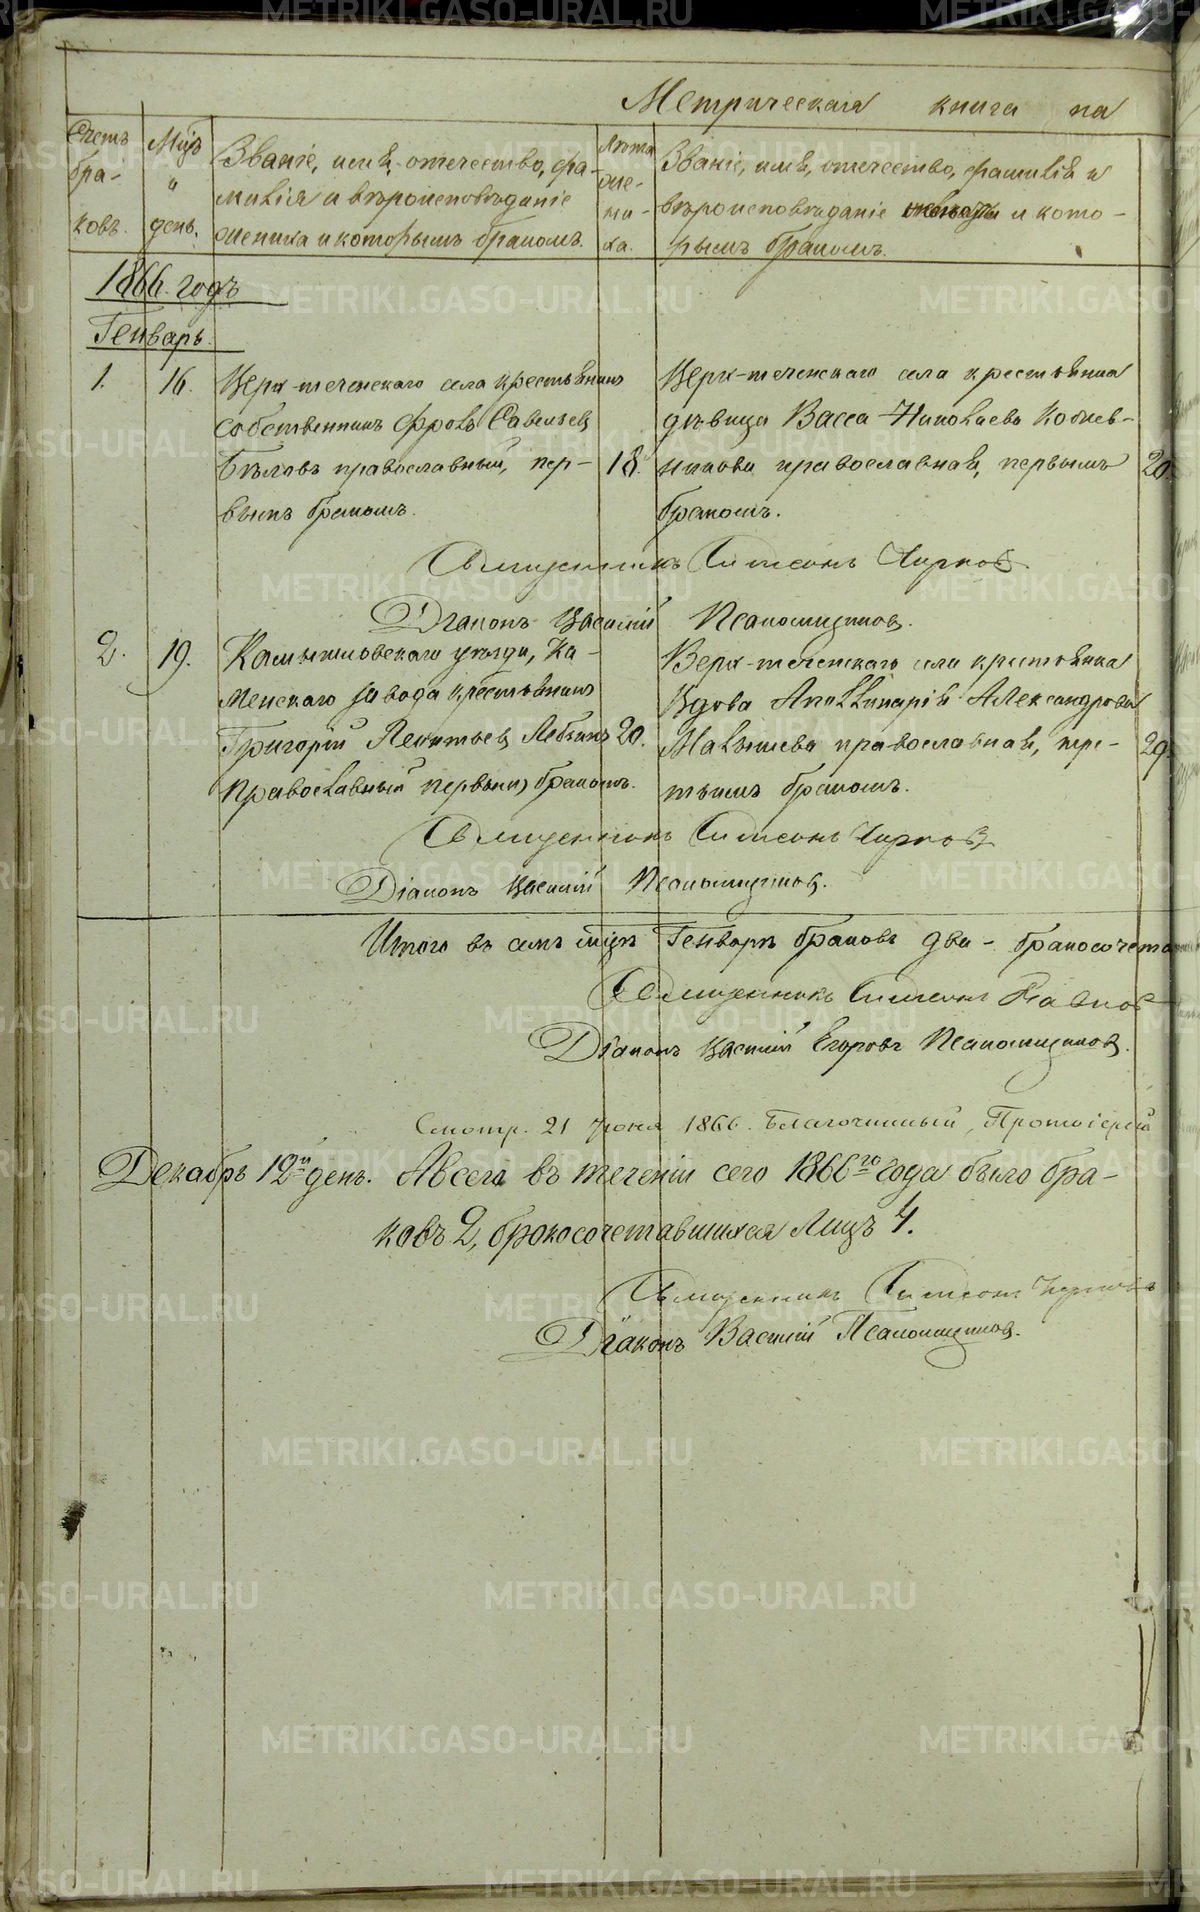 Метрическая книга на
Счетъ бра- ковъ.
Мцъ и день.
Званіе, имя, отечество, фа-
милія и вѣроисповѣданіе
жениха и которымъ бракомъ.
Лѣта же- ни- ха.
Званіе, имя, отечество, фамилія и
вѣроисповѣданіе невѣсты и кото-
рымъ бракомъ.
1866. годъ
Генварь.
1.
16.
Верх-теченскаго села крестьянинъ
собственникъ Фролъ Савельевъ
Бѣловъ православный, пер-
вымъ бракомъ.
18.
Верх-теченскаго села крестьянка
дѣвица Васса Николаева
православная, первымъ
бракомъ.
20.
Священникъ Симеонъ
Діаконъ Василій Псаломщиковъ.
2.
19.
Камышловскаго уѣзда, Ка-
менскаго завода крестьянинъ
Григорій Леонтьевъ
православный первымъ бракомъ.
20.
Верх-теченскаго села крестьянка
вдова Аполлинарія Александрова
Малышева православная, тре-
тьимъ бракомъ.
29.
Священникъ Симеонъ
Діаконъ Василій Псаломщиковъ.
Итого въ семъ мцѣ Генварѣ браковъ два - бракосочета
Священникъ Симеонъ
Діаконъ Василій Егоровъ Псаломщиковъ.
Смотр. 21 Іюня 1866. Благочинный, Протоіерей
Декабрь 12й день. А всего въ теченіи сего 1866го года было бра-
ковъ 2, бракосочетавшихся лицъ 4.
Священникъ Симеонъ
Діаконъ Василій Псаломщиковъ.
METRIKI.GASO-URAL.RU